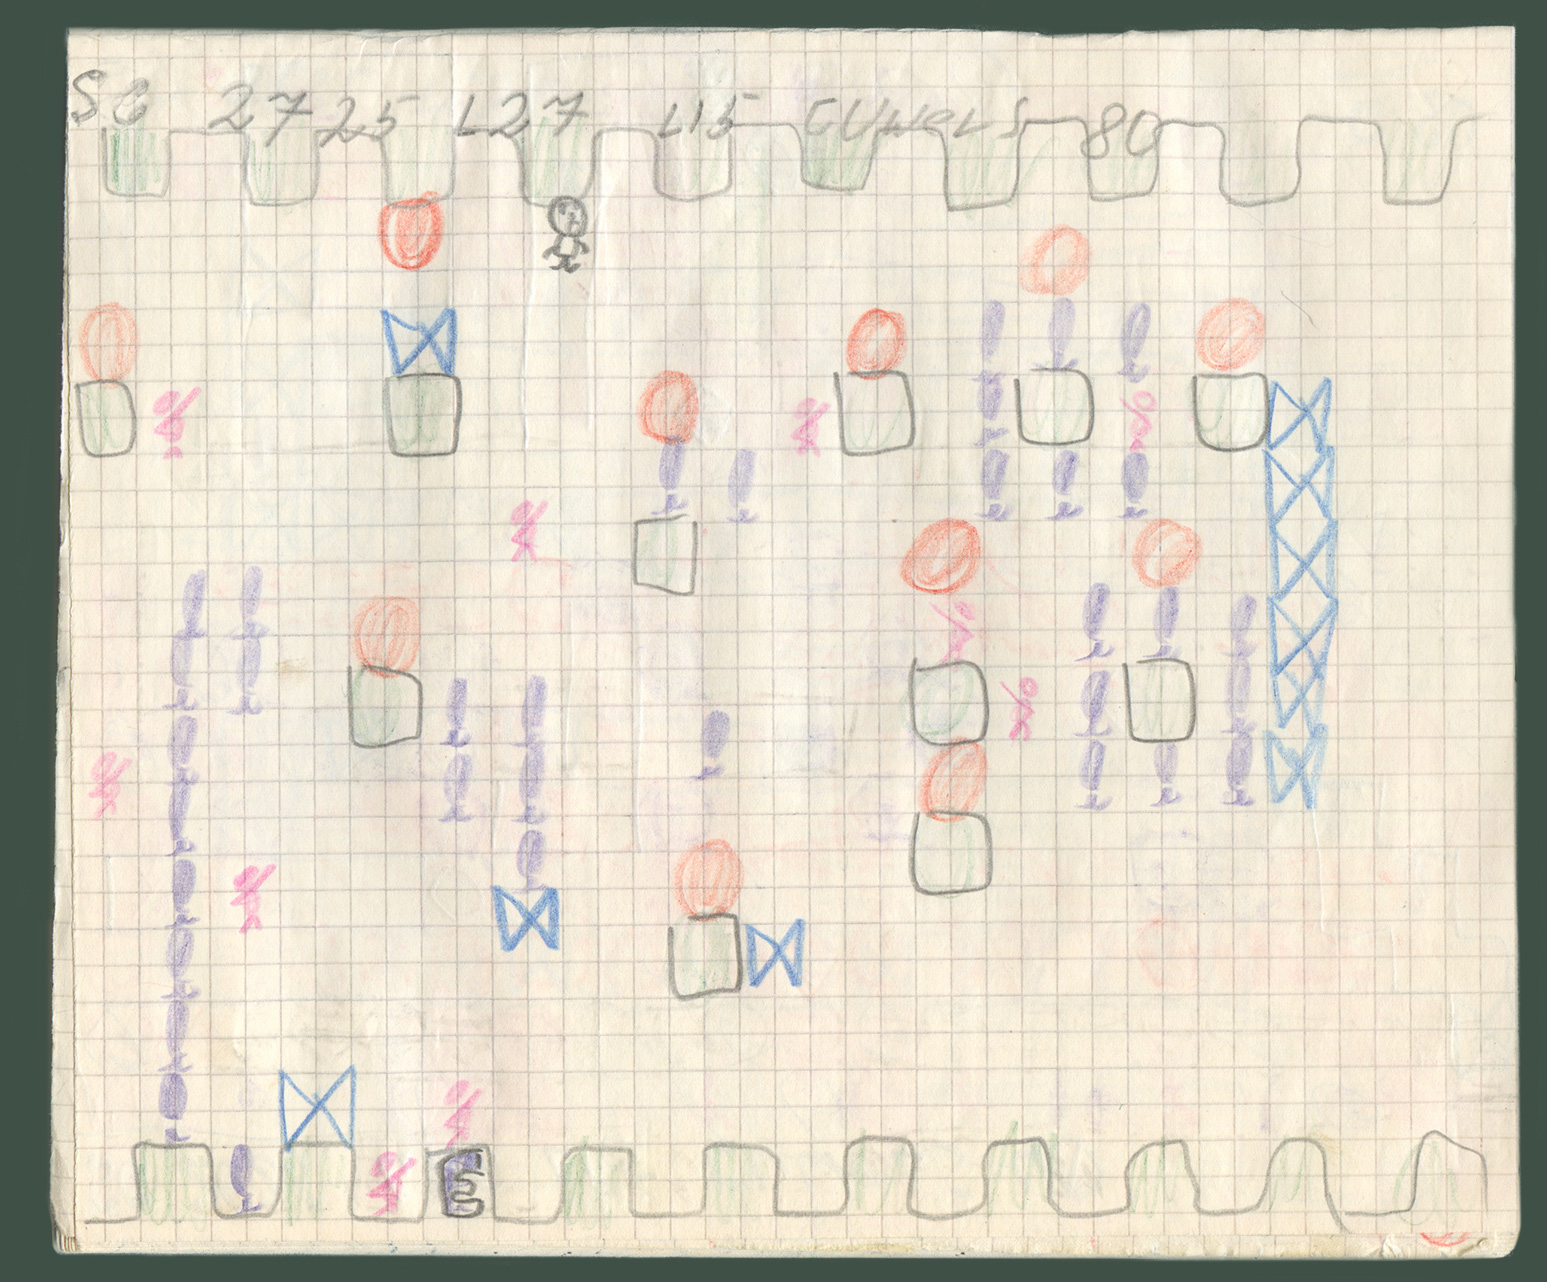 SC 2725 L27 L15 GUWOLS 80